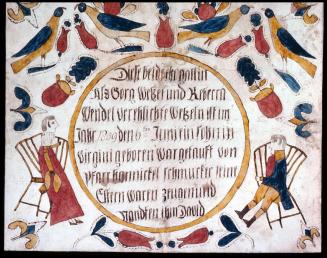 Diese beide Ehegatten
Als Görg Wetzel und Rebecca
Wendel verehlichte Wetzeln ist im
Jahr den 6ten Juni ein Sohn in
Virgini geboren war getauft von
Pfarr schmucker seine
Eltern waren zeugen und
Nandten ihm David